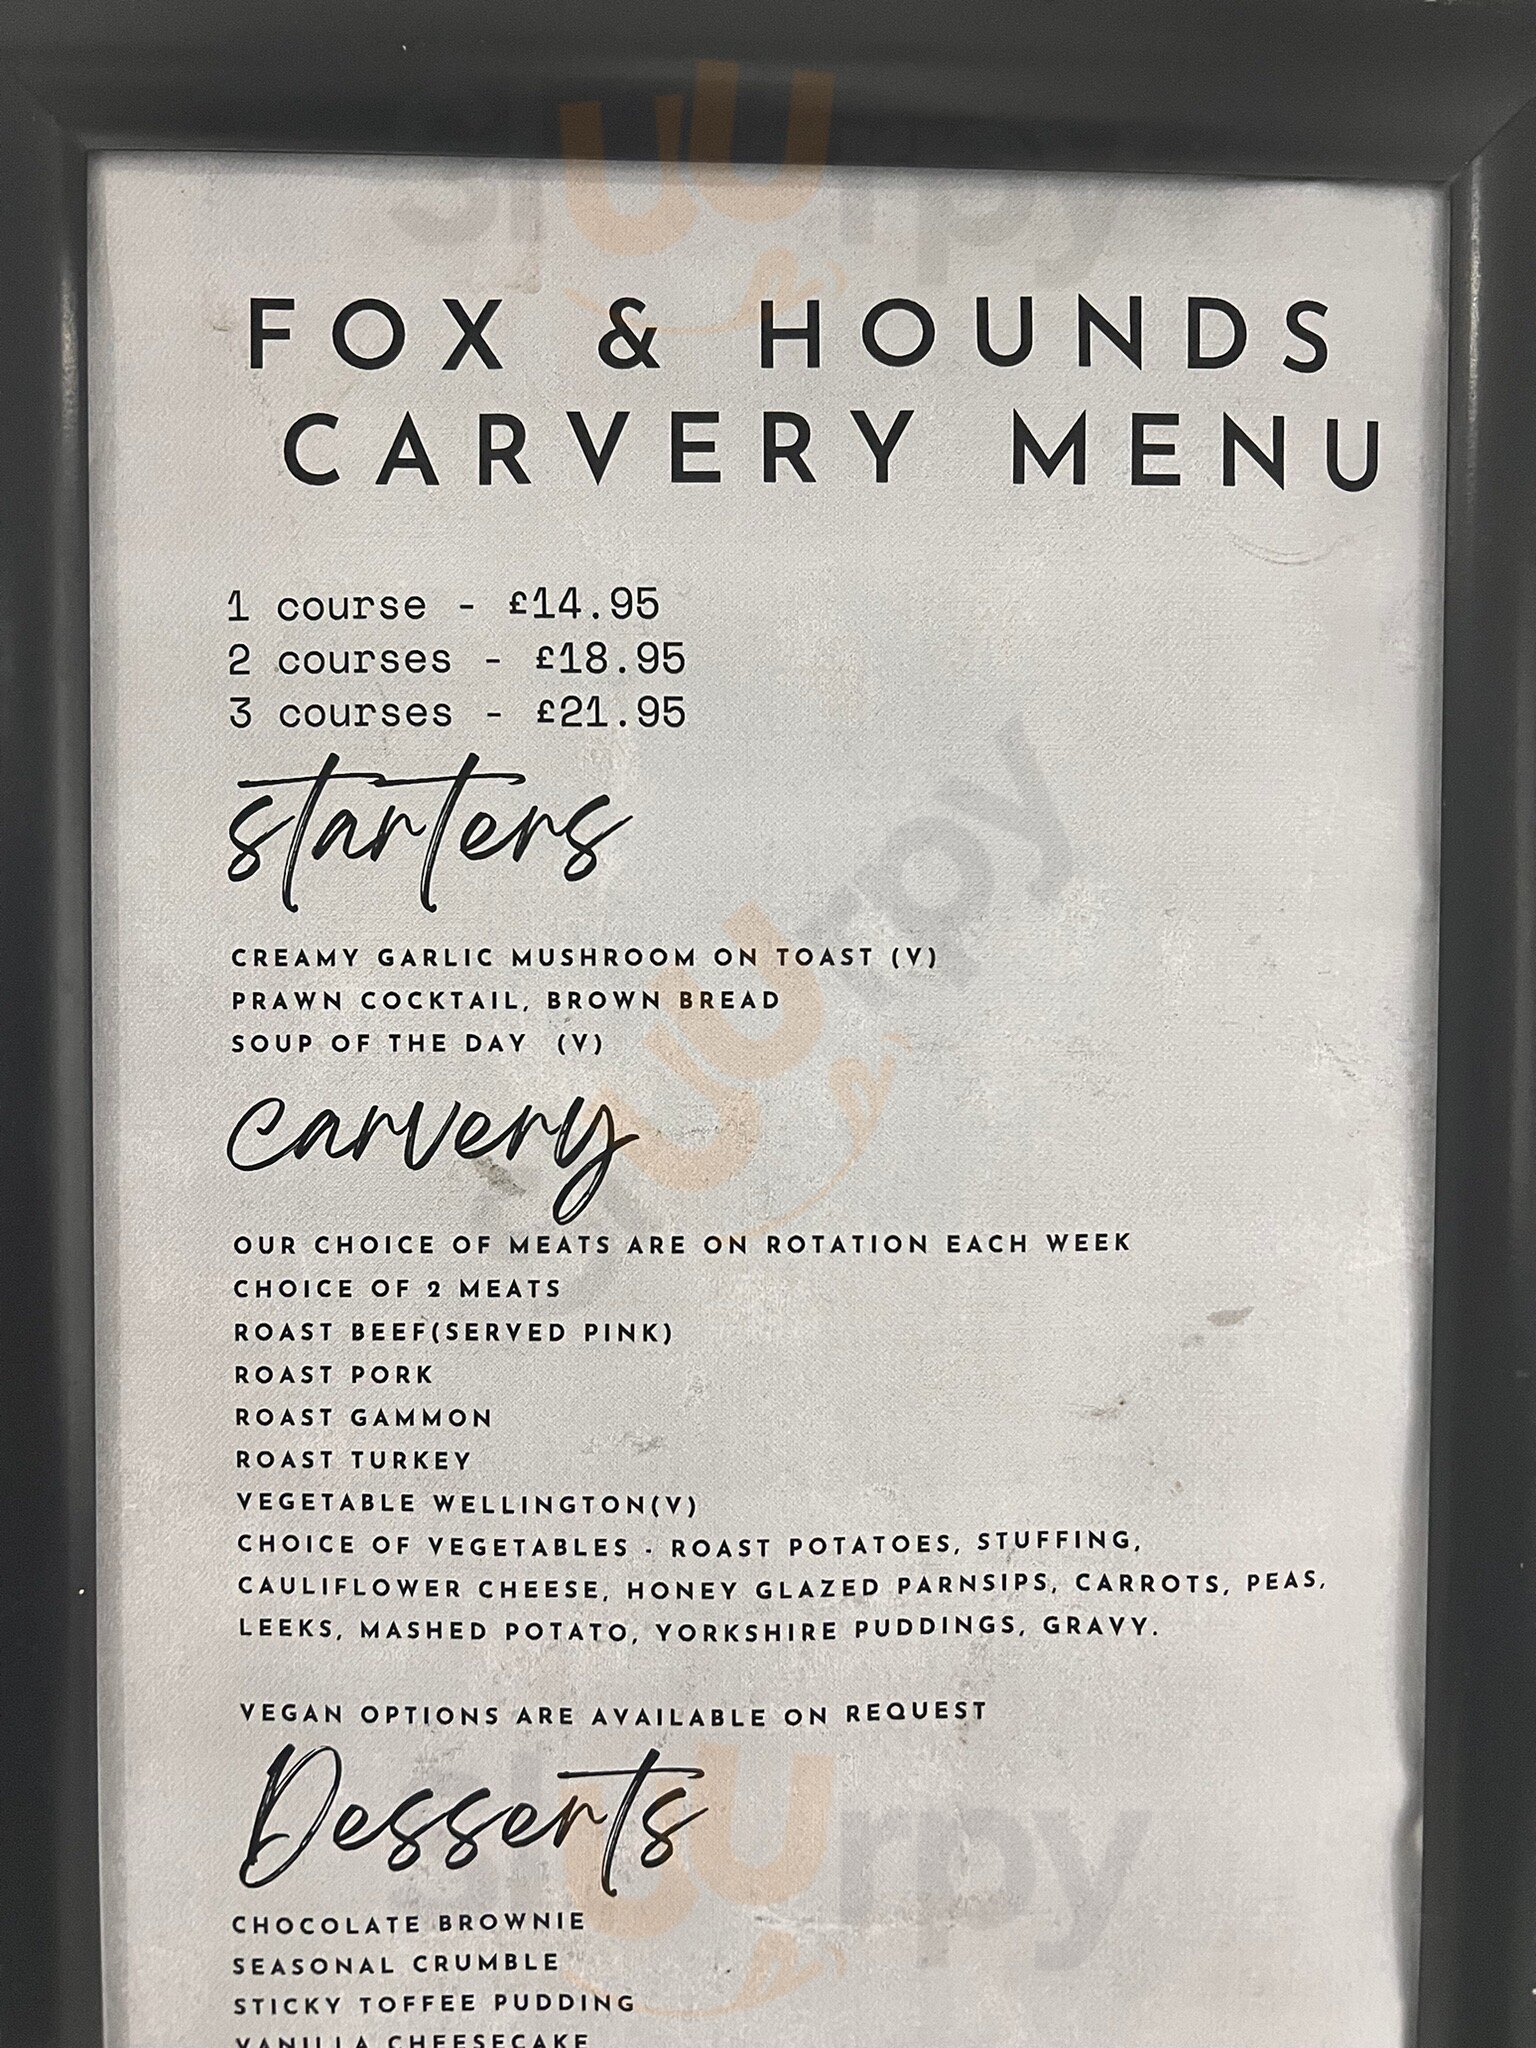 FOX & HOUNDS
CARVERY MENU
1 course - £14.95
2 courses - £18.95
3 courses - £21.95
starters
CREAMY GARLIC MUSHROOM ON TOAST (V)
PRAWN COCKTAIL, BROWN BREAD
SOUP OF THE DAY (V)
carvery
OUR CHOICE OF MEATS ARE ON ROTATION EACH WEEK
CHOICE OF 2 MEATS
ROAST BEEF(SERVED PINK)
ROAST PORK
ROAST GAMMON
ROAST TURKEY
VEGETABLE WELLINGTON(V)
CHOICE OF VEGETABLES - ROAST POTATOES, STUFFING,
CAULIFLOWER CHEESE, HONEY GLAZED PARNSIPS, CARROTS, PEAS,
LEEKS, MASHED POTATO, YORKSHIRE PUDDINGS, GRAVY.
VEGAN OPTIONS ARE AVAILABLE ON REQUEST
Desserts
CHOCOLATE BROWNIE
SEASONAL CRUMBLE
STICKY TOFFEE PUDDING
VANILLA CHEESECAKE
sluurpy
sluurpy
sluurpy